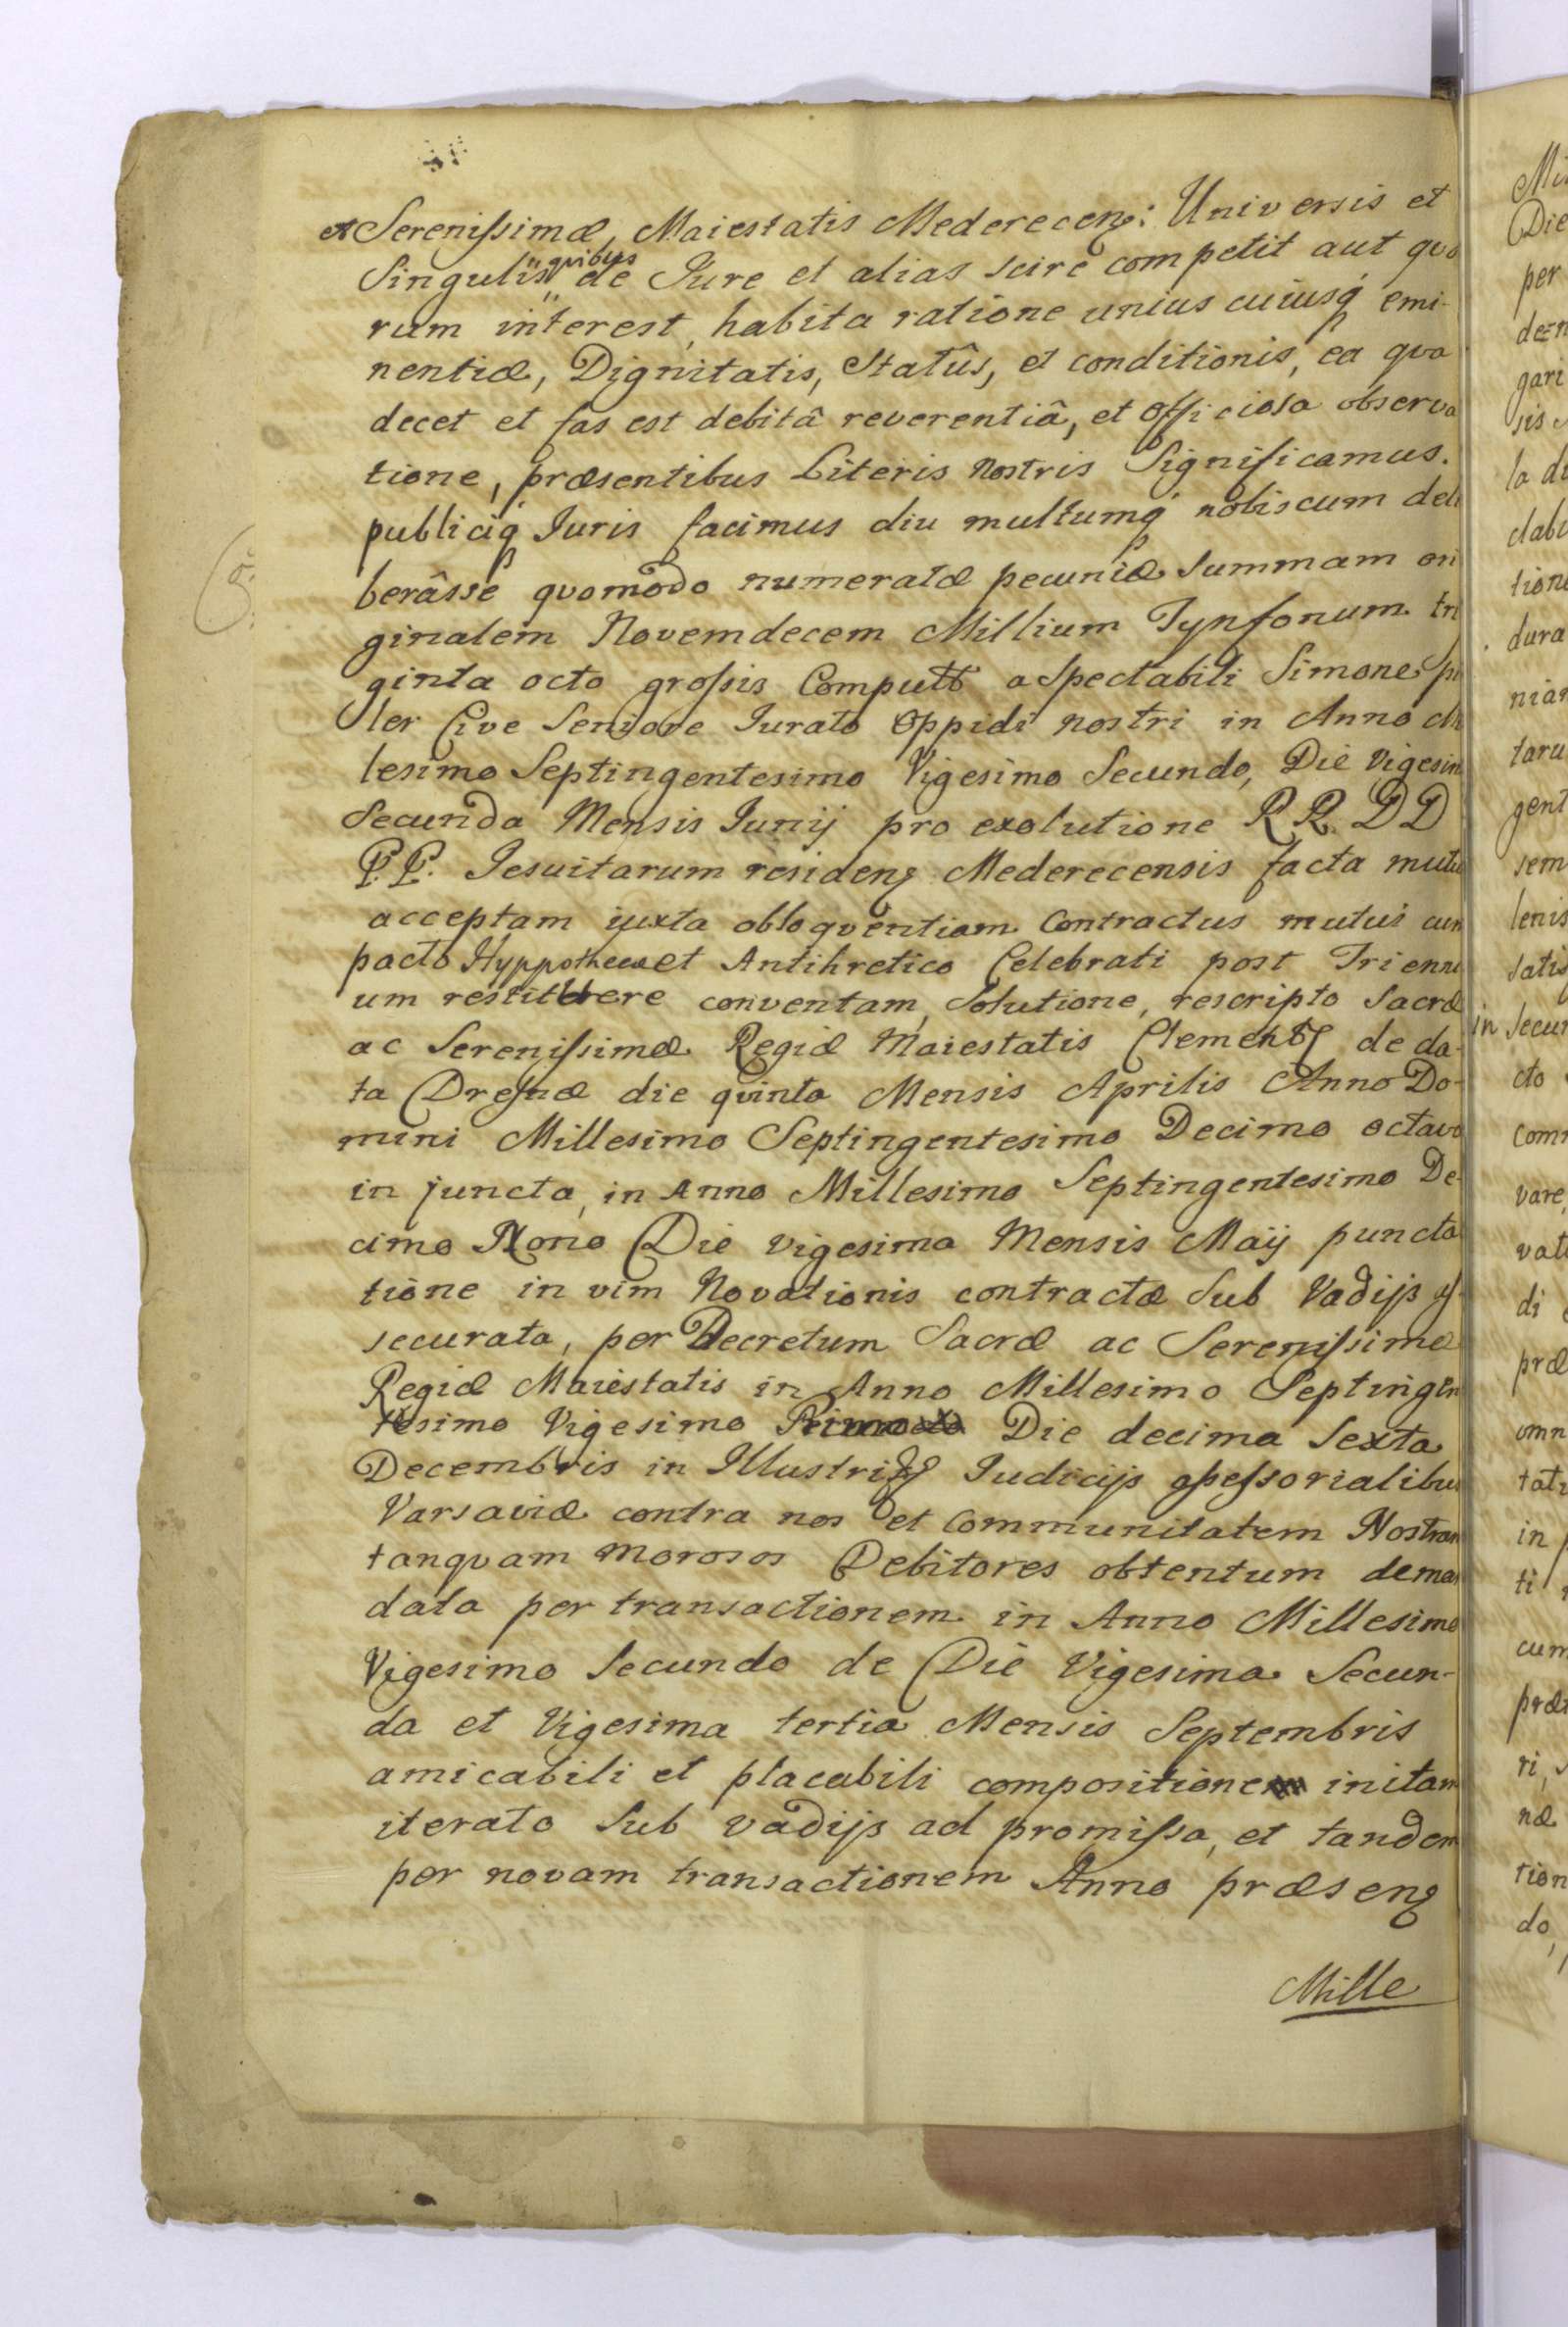 et Serenissimæ, Maiestatis Mederecenę: Universis et
Singulis quibus de Iure et alias scire competit aut quo
rum interest, habita ratione unius cuiusq́ emi-
nentiæ, Dignitatis, Statûs, et conditionis, ea qva
decet et fas est debitâ reverentiâ, et officiosa observa
tione, præsentibus Literis Nostris Significamus.
publiciq́ Iuris facimus diu multumq́ nobiscum deli
berâsse qvomodo numeratæ pecuniæ Summam ori
ginalem Novemdecem Millium Tynfonum tri
ginta octo grossis Computt a Spectabili Simone
ler Cive Seniore Iurato Oppidi nostri in Anno
lesimo Septingentesimo Vigesimo Secundo, Die Vigesim
Secunda Mensis Iunij pro exolutione R R. D D
P. P. Iesuitarum residenę Mederecensis facta mutu
acceptam iuxta obloqventiam Contractus mutui cum
pacto Hyppothecæ et Antihretico Celebrati post Trienni
um restituere conventam, Solutione, rescripto Sacræ
ac Serenissimæ Regiæ Maiestatis de da-
ta Dresnæ die qvinta Mensis Aprilis Anno Do-
mini Millesimo Septingentesimo Decimo octavo
in juncta, in Anno Millesimo Septingentesimo De-
cimo Nono Die vigesima Mensis Maij puncta
tione in vim Novationis contractæ Sub Vadijs as
securata, per Decretum Sacræ ac Serenissimæ
Regiæ Maiestatis in Anno Millesimo Septingen
tesimo Vigesimo Primo Die decima Sexta
Decembris in Judicijs assessorialibus
Varsaviæ contra nos et Communitatem Nostram
tanqvam morosos Debitores obtentum deman
data per transactionem in Anno Millesimo
Vigesimo Secundo de Die Vigesima Secun-
da et Vigesima tertia Mensis Septembris
amicabili et placabili compositione initam
iterato Sub vadijs ad promissa, et tandem
per novam transactionem Anno præsenę
Mille